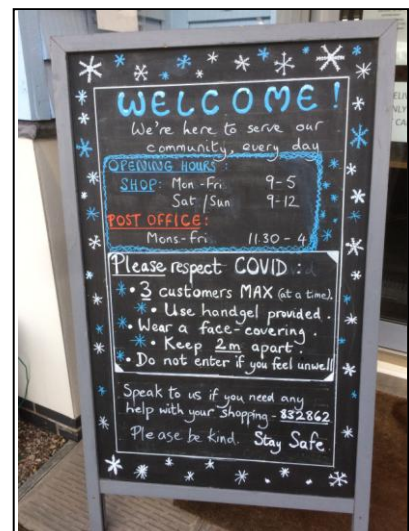 WELCOME!
We're here to serve our
community, every day
OPENING HOURS:
SHOP: Mon-Fri 9-5
Sat/Sun 9-12
POST OFFICE:
Mons-Fri 11.30-4
Please respect COVID:
• 3 customers MAX (at a time).
• Use handgel provided.
• Wear a face-covering.
• Keep 2m apart.
• Do not enter if you feel unwell
Speak to us if you need any
help with your shopping - 832862
Please be kind. Stay Safe.